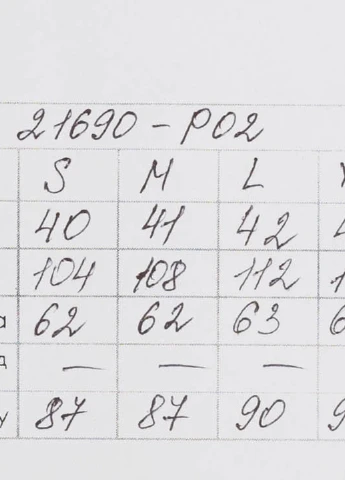 21690-P02
S M L
40 41 42
104 108 112
а 62 62 63
д — — —
у 87 87 90